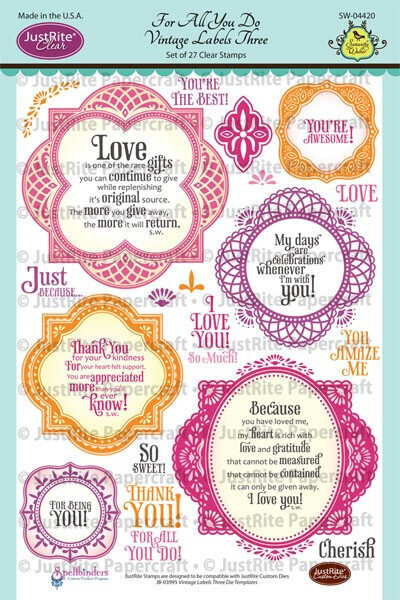 Made in the U.S.A.
JustRite
Clear
For All You Do
Vintage Labels Three
Set of 27 Clear Stamps
SW-04420
YOU'RE
THE BEST!
YOU'RE
AWESOME!
Love
is one of the rare gifts
you can continue to give
while replenishing
it's original source.
The more you give away,
the more it will return.
s.w.
LOVE
My days
are
celebrations
whenever
I'm with
you!
s.w.
Just
BECAUSE...
I
LOVE
YOU!
So Much!
Thank You
for your kindness
For your heart-felt support.
You are appreciated
more than you'll
ever
know!
s.w.
YOU
AMAZE
ME
Because
you have loved me,
my heart is rich with
love and gratitude
that cannot be measured
that cannot be contained
it can only be given away.
I love you!
s.w.
SO
SWEET!
FOR BEING
YOU!
THANK
YOU!
FOR ALL
YOU DO!
Cherish
Spellbinders
JustRite Stamps are designed to be compatible with JustRite Custom Dies
JB-03995 Vintage Labels Three Die Templates
JustRite
© JustRite Papercraft